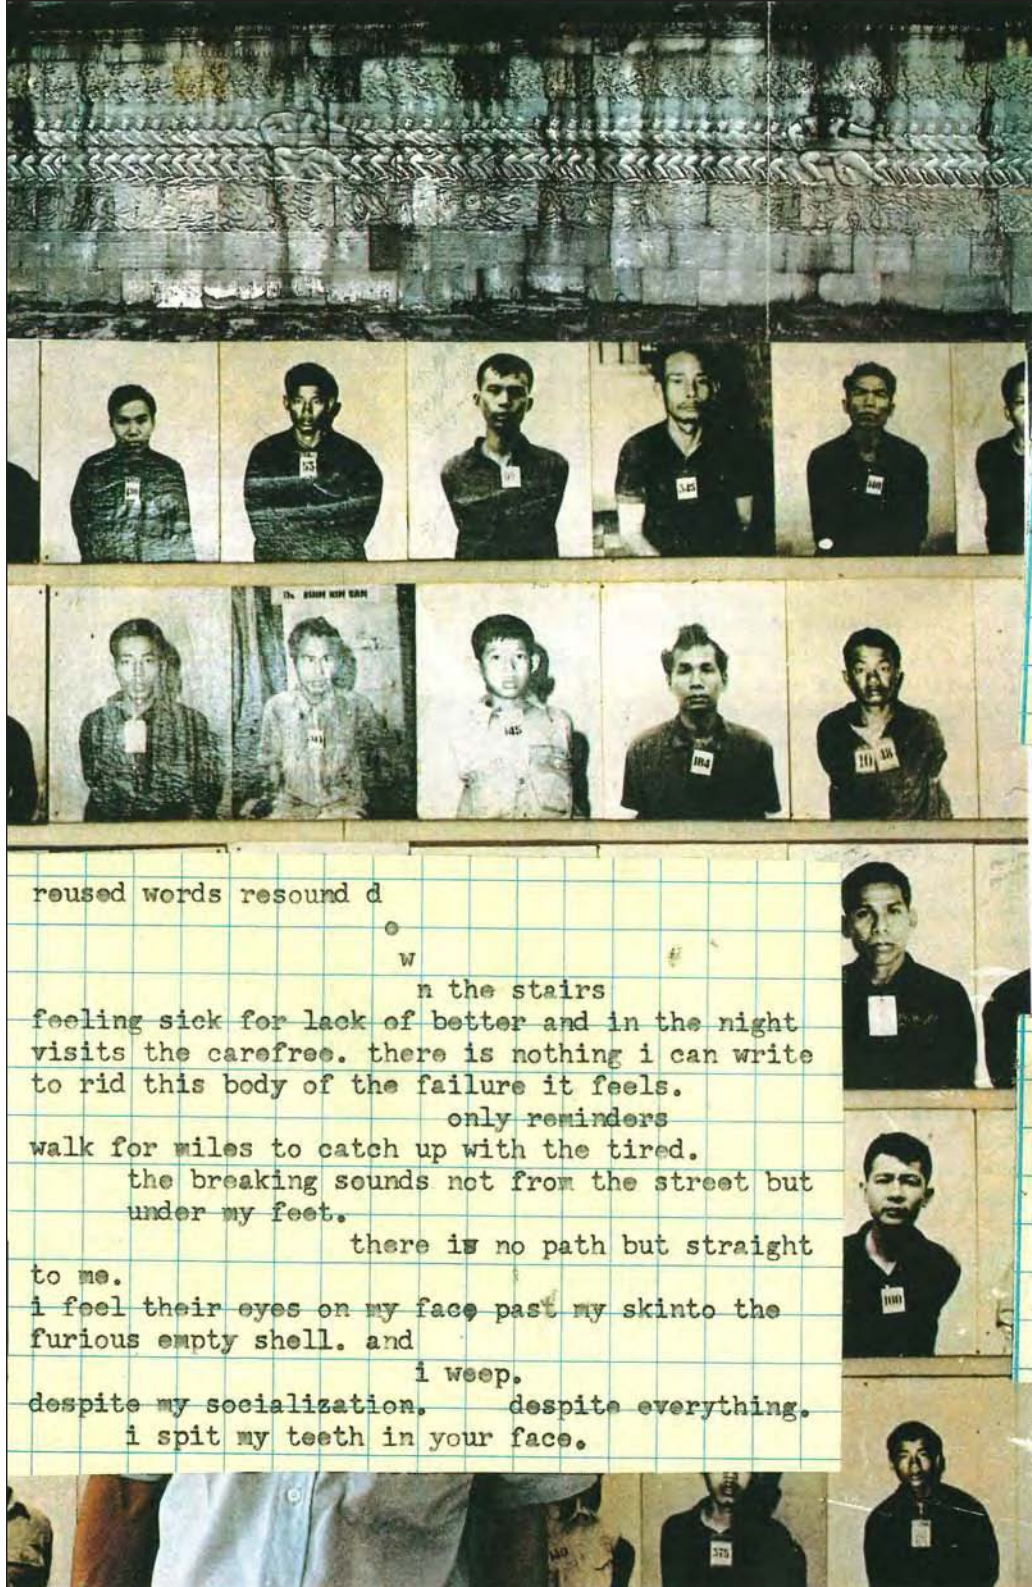 53
345
DR. BUUN KIM SAN
145
184
10 18
reused words resound d
o
w
n the stairs
feeling sick for lack of better and in the night
visits the carefree. there is nothing i can write
to rid this body of the failure it feels.
only reminders
walk for miles to catch up with the tired.
the breaking sounds not from the street but
under my feet.
there is no path but straight
to me.
i feel their eyes on my face past my skinto the
furious empty shell. and
i weep.
despite my socialization. despite everything.
i spit my teeth in your face.
100
575